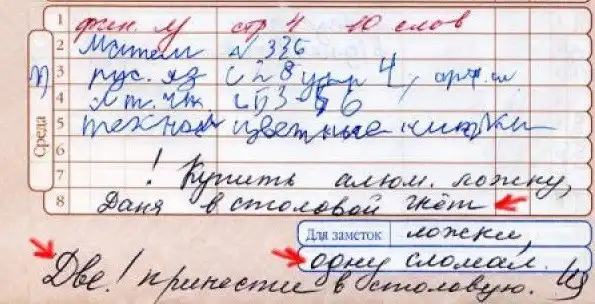 1 физ. м стр 4 10 слов
2 Матем N 336
3 рус. яз с 28 упр 4,
4 Лт. чт. с 53-56
5 технол цветные
6
7 ! Купить алюм. ложку,
8 Даня в столовой гнёт
Для заметок ложки,
одну сломал.
Две! принести в столовую.
Среда